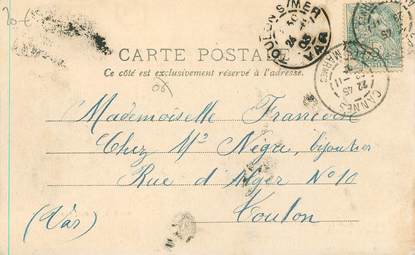 TOULON S/MER
VAR
CARTE POSTALE
Ce côté est exclusivement réservé à l'adresse.
CANNES
Mademoiselle François
Chez Mr Nègre, bijoutier
Rue d'Alger N° 10
Toulon
(Var)